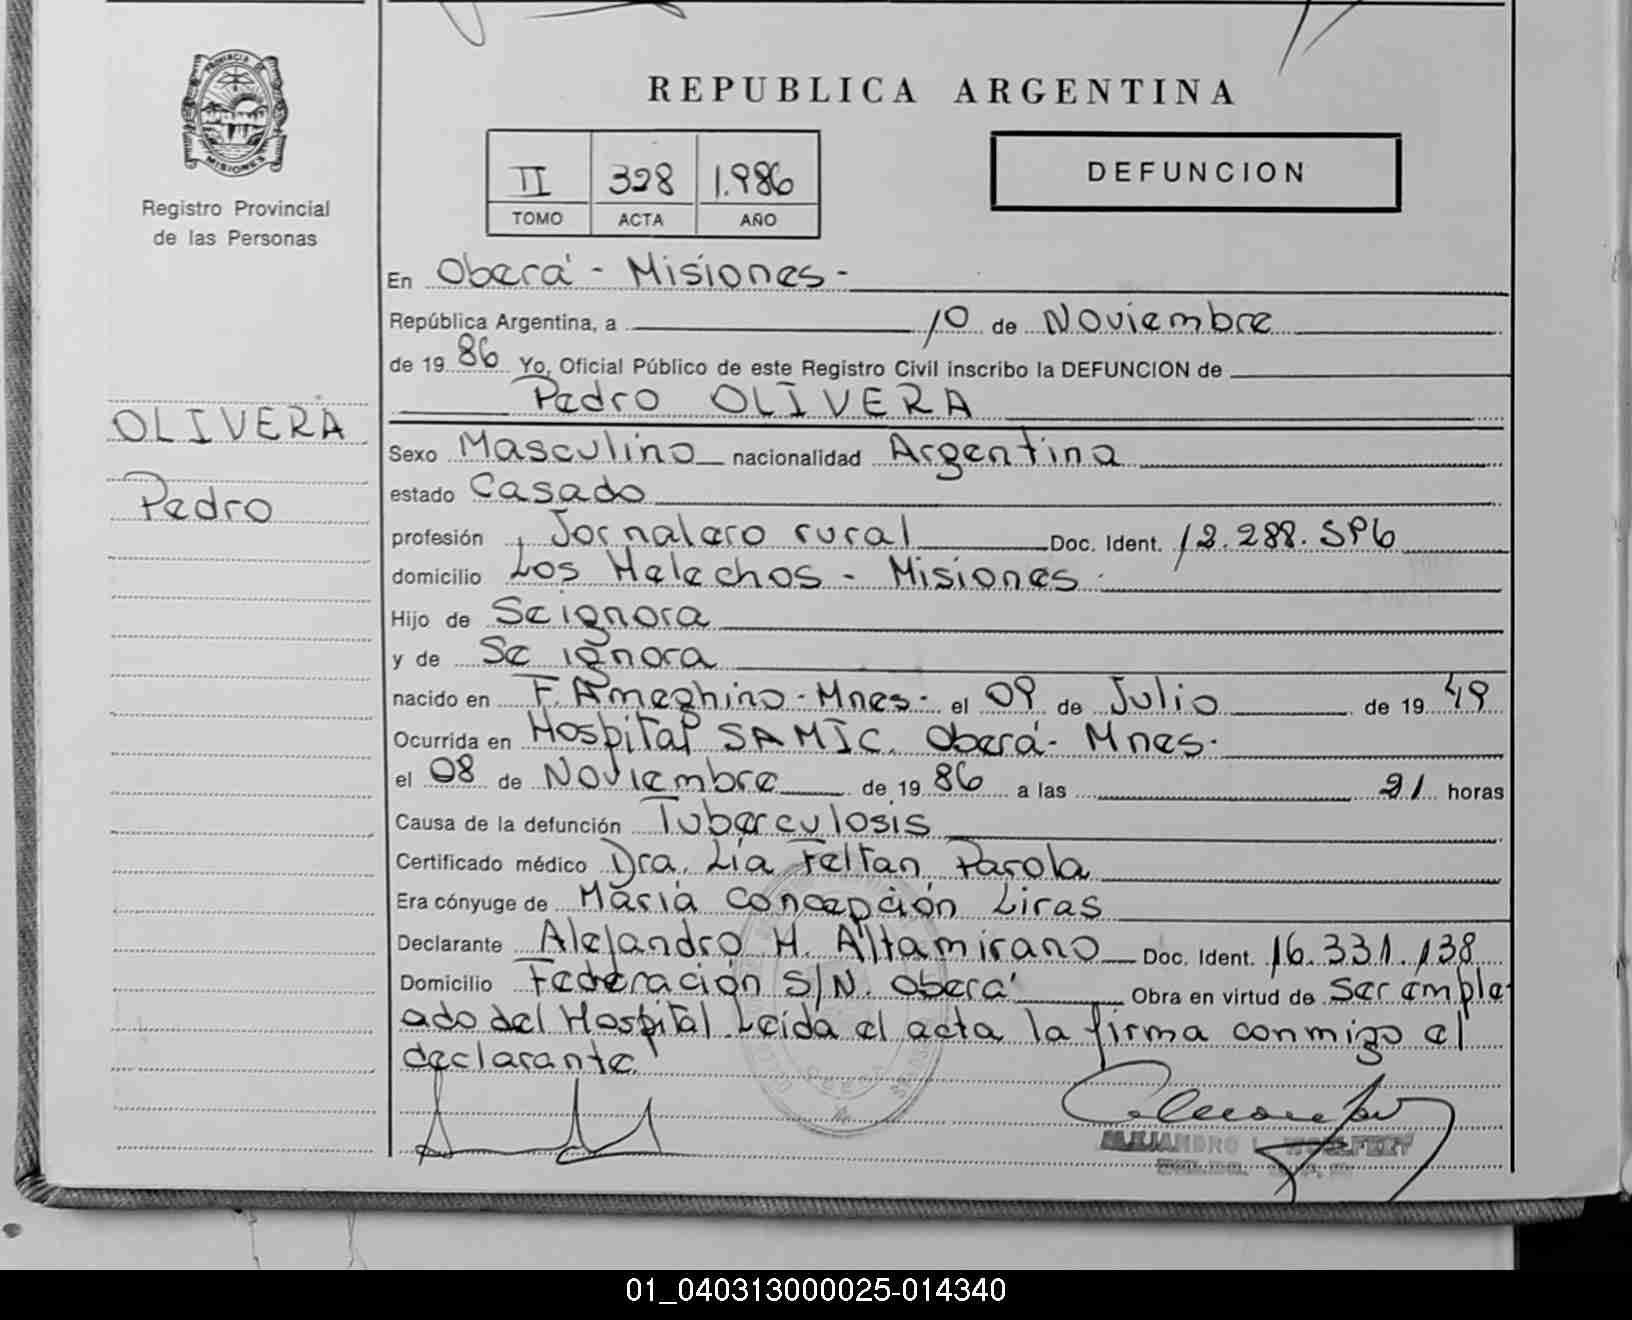 PROVINCIA DE
MISIONES
Registro Provincial
de las Personas
OLIVERA
Pedro
REPUBLICA ARGENTINA
II 328 1.986
TOMO ACTA AÑO
DEFUNCION
En Oberá - Misiones -
República Argentina, a 10 de Noviembre
de 19 86 Yo, Oficial Público de este Registro Civil inscribo la DEFUNCION de
Pedro OLIVERA
Sexo Masculino nacionalidad Argentina
estado Casado
profesión Jornalero rural Doc. Ident.
domicilio Los Helechos - Misiones.
Hijo de Se ignora
y de Se ignora
nacido en F. Ameghino - Mnes - el 09 de Julio de 19 49
Ocurrida en Hospital SAMIC. Oberá - Mnes.
el 08 de Noviembre de 19 86 a las 21 horas
Causa de la defunción Tuberculosis
Certificado médico Dra. Lía Feltan Parola
Era cónyuge de María Concepción Liras
Declarante Alejandro H. Altamirano Doc. Ident. 16.331.138
Domicilio Federación S/N. Oberá Obra en virtud de Ser emple
ado del Hospital. Leída el acta la firma conmigo el
declarante.
ALEJANDRO
01_040313000025-014340